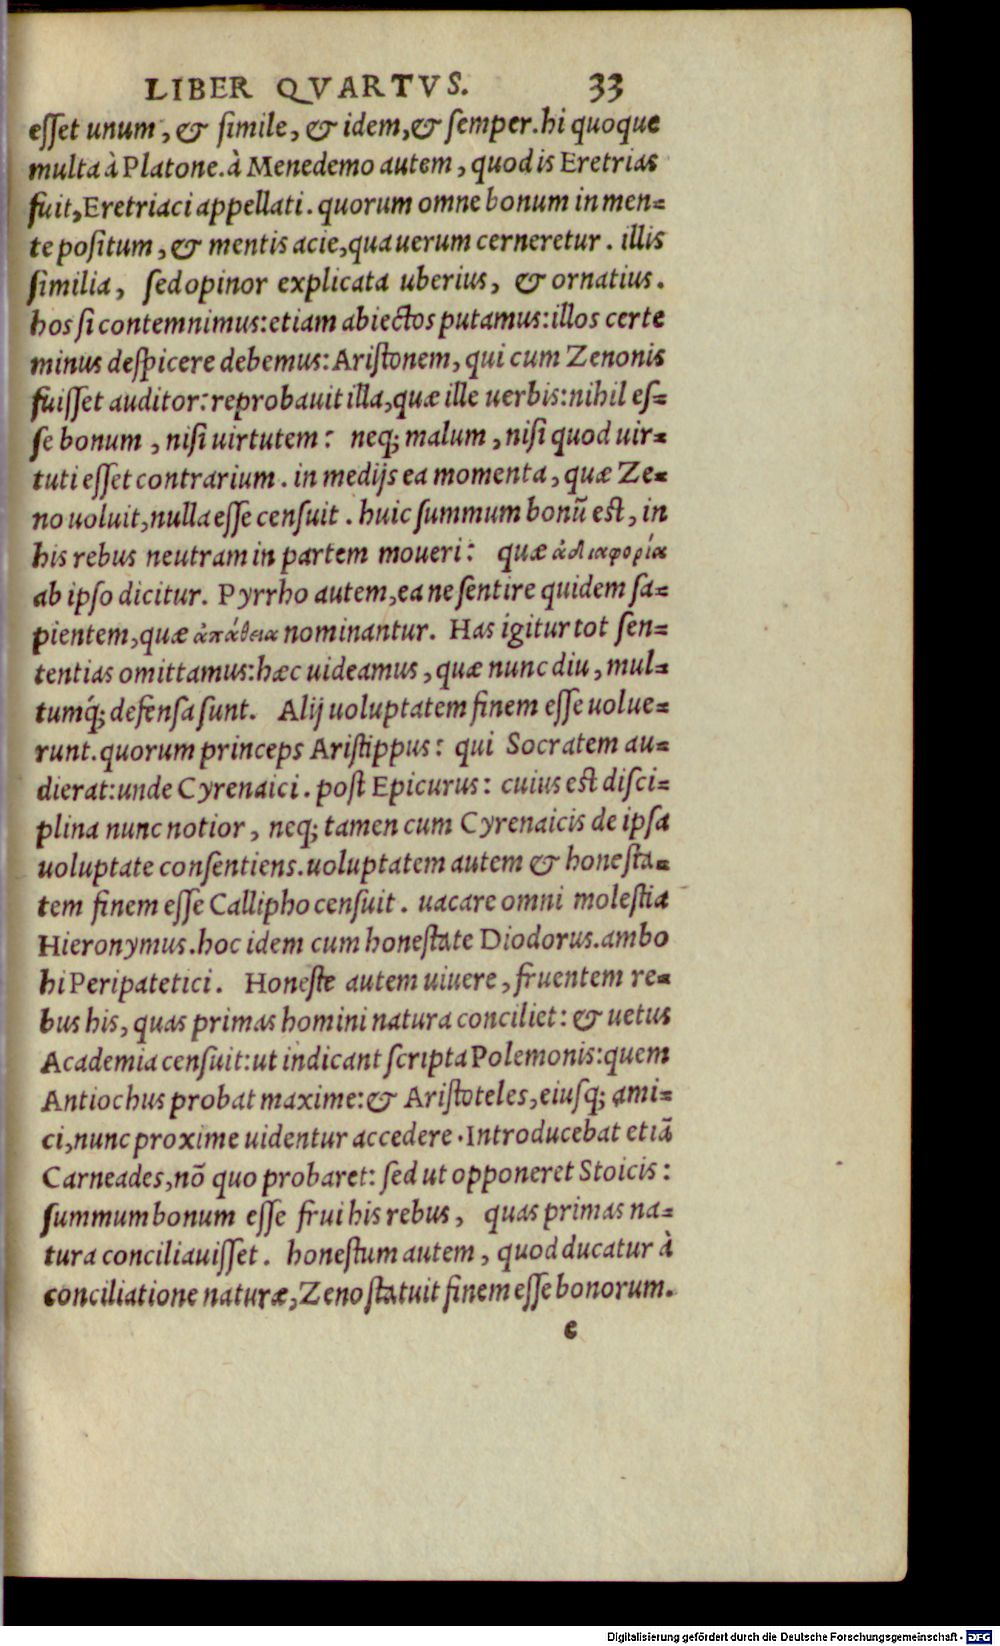 LIBER QVARTVS. 33
esset unum, & simile, & idem, & semper. hi quoque
multa à Platone. à Menedemo autem, quod is Eretrias
fuit, Eretriaci appellati. quorum omne bonum in men=
te positum, & mentis acie, qua uerum cerneretur. illis
similia, sed opinor explicata uberius, & ornatius.
hos si contemnimus: etiam abiectos putamus: illos certe
minus despicere debemus: Aristonem, qui cum Zenonis
fuisset auditor: reprobauit illa, quæ ille uerbis: nihil es=
se bonum, nisi uirtutem: neq; malum, nisi quod uir=
tuti esset contrarium. in medijs ea momenta, quæ Ze=
no uoluit, nulla esse censuit. huic summum bonũ est, in
his rebus neutram in partem moueri: quæ ἀδιαφορία
ab ipso dicitur. Pyrrho autem, ea ne sentire quidem sa=
pientem, quæ ἀπάθεια nominantur. Has igitur tot sen=
tentias omittamus: hæc uideamus, quæ nunc diu, mul=
tumq́; defensa sunt. Alij uoluptatem finem esse uolue=
runt. quorum princeps Aristippus: qui Socratem au=
dierat: unde Cyrenaici. post Epicurus: cuius est disci=
plina nunc notior, neq; tamen cum Cyrenaicis de ipsa
uoluptate consentiens. uoluptatem autem & honesta=
tem finem esse Callipho censuit. uacare omni molestia
Hieronymus. hoc idem cum honestate Diodorus. ambo
hi Peripatetici. Honeste autem uiuere, fruentem re=
bus his, quas primas homini natura conciliet: & uetus
Academia censuit: ut indicant scripta Polemonis: quem
Antiochus probat maxime: & Aristoteles, eiusq; ami=
ci, nunc proxime uidentur accedere. Introducebat etiã
Carneades, nõ quo probaret: sed ut opponeret Stoicis:
summum bonum esse frui his rebus, quas primas na=
tura conciliauisset. honestum autem, quod ducatur à
conciliatione naturæ, Zeno statuit finem esse bonorum.
e
Digitalisierung gefördert durch die Deutsche Forschungsgemeinschaft - DFG